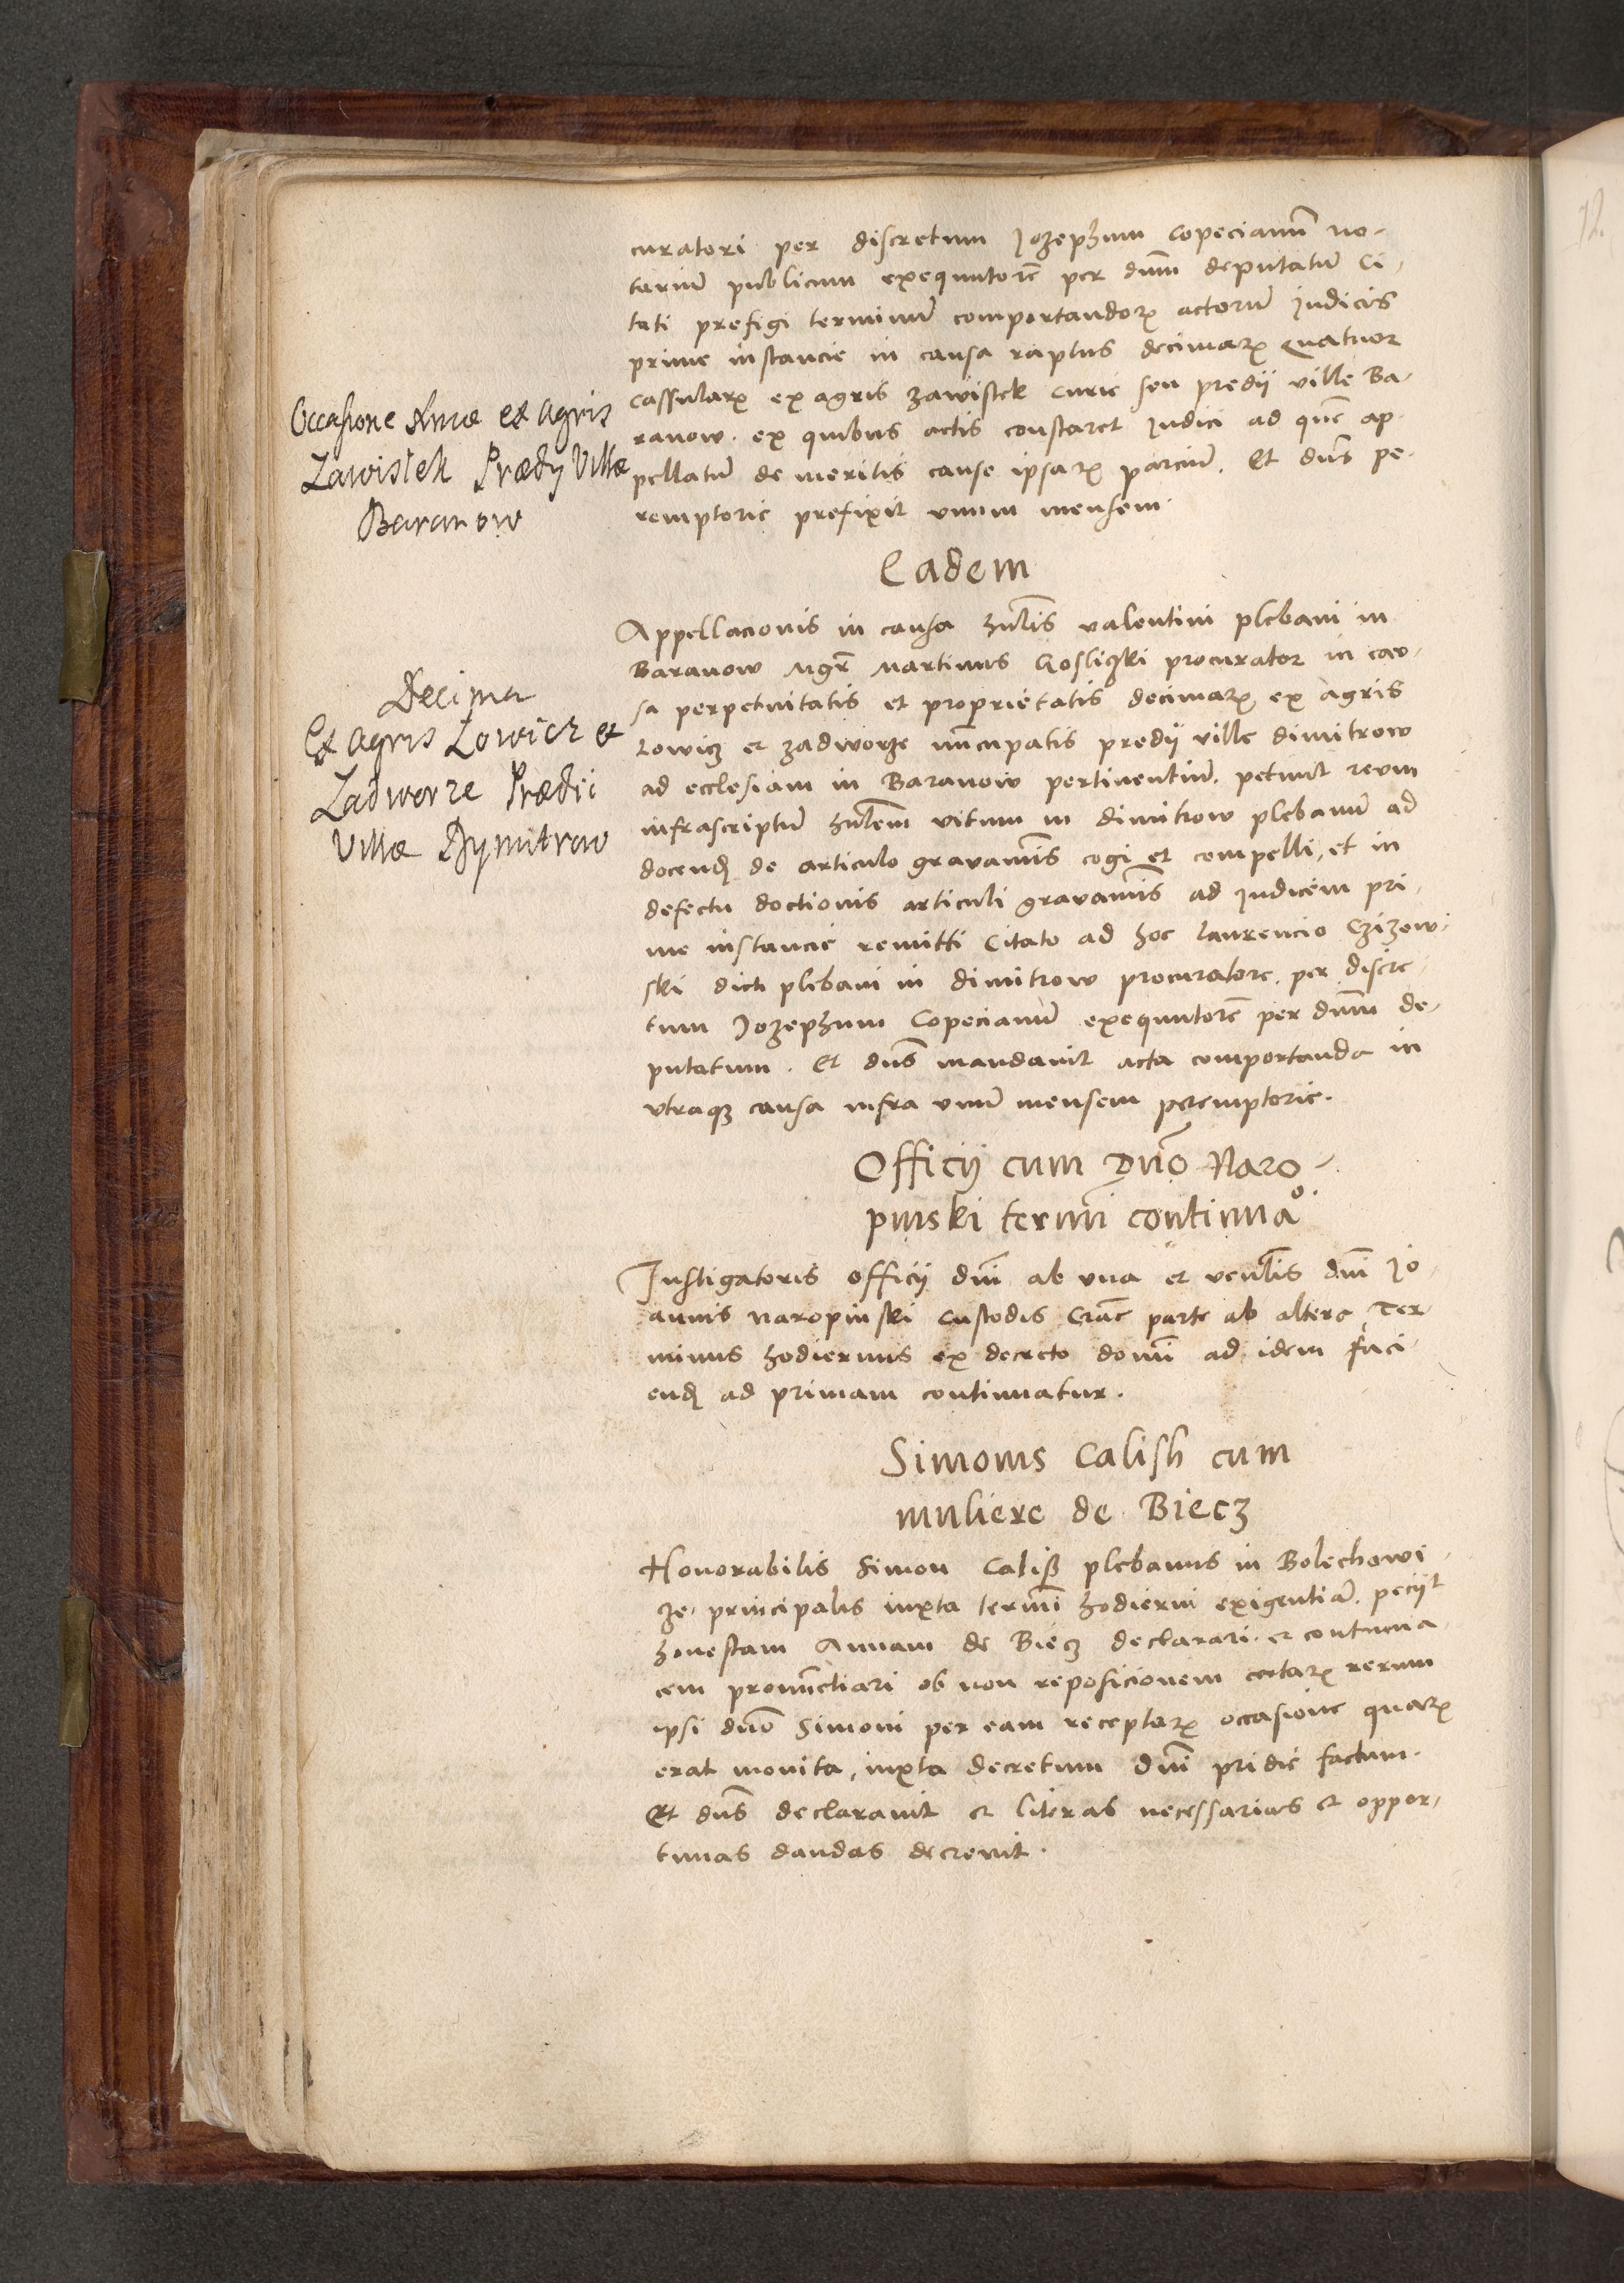 curatori per discretum Jozephum Copecianũ no-
tariũ publicum exequutorẽ per dnm̃ deputatũ Ci-
tati prefigi terminũ comportandoꝝ actorũ Judicis
prime instancie in causa raptus decimaꝝ quatuor
cassularꝝ ex agris zawistek Curie seu predii ville Ba-
ranow. ex quibus actis constaret Judici ad quẽ ap-
pellatũ de meritis cause ipsaꝝ parciũ. Et dns̃ pe-
remptorie prefixit unum mensem.
Occasione Xmæ ex Agris
Zawistek Prædij Villæ
Baranow
Eadem
Appellacionis in causa hnl̃is valentini plebani in
Baranow Mgr̃ Martinus Gosliczki procurator in cau-
sa perpetuitatis et proprietatis decimaꝝ ex agris
Lowicz et zadworze nũcupatis predii ville dimitrow
ad ecclesiam in Baranow pertinentiũ. petiuit reum
infrascriptũ hnl̃em vitum in dimitrow plebanũ ad
docend̃ de articulo gravamĩs cogi et compelli, et in
defectu doctionis articuli gravamĩs ad Judicem pri-
me instancie remitti Citato ad hoc laurencio Czizow-
ski dicti plebani in dimitrow procuratore. per discre-
tum Jozephum Copecianũ exequutorẽ per dnm̃ de-
putatum. Et dns̃ mandauit acta comportanda in
vtraqꝫ causa infra unũ mensem peremptorie.
Decima
Ex Agris Lowicz et
Zadworze Prædii
Villæ Dymitrow
Officij cum Dnõ Naro-
pinski termĩ continuaᵒ
Instigatoris officij dnĩ ab vna et venl̃is dnĩ Jo-
annis naropinski Custodis Crac̃ parte ab altera, Ter-
minus hodiernus ex decreto domĩ ad idem faci-
end̃ ad primam continuatur.
Simonis Calish cum
muliere de Biecz
Honorabilis Simon Caliß plebanus in Bolechowi-
ze principalis iuxta termĩ hodierni exigentiã. peciit
honestam Annam de Biecz declarari. et contuma-
cem pronũctiari ob non reposicionem certaꝝ rerum
ipsi dnõ Simoni per eam receptaꝝ occasione quaꝝ
erat monita, iuxta decretum dnĩ pridie factum.
Et dns̃ declarauit et literas necessarias et oppor-
tunas dandas decreuit.